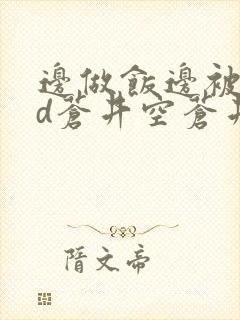 邊做飯邊被
d蒼井空蒼井
隋文帝